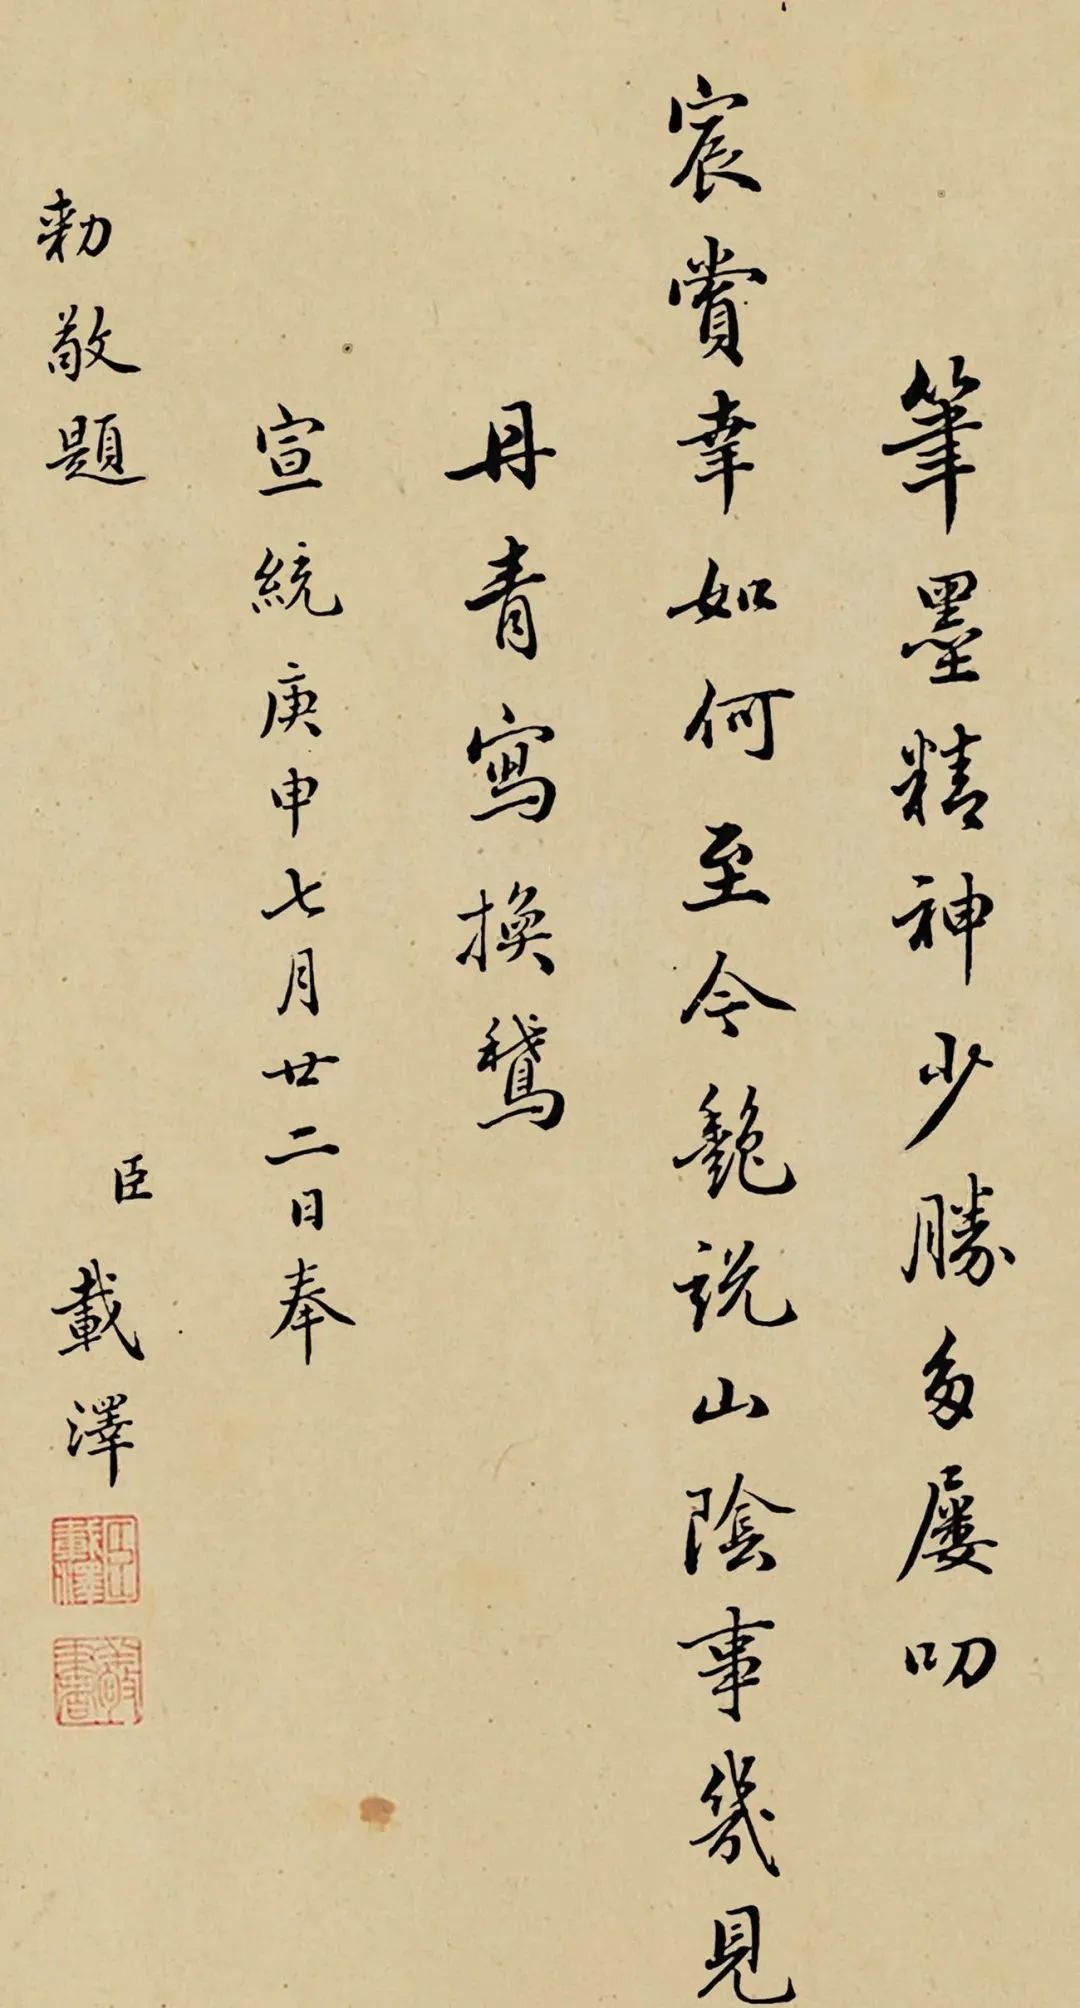 筆墨精神少勝多屢叨
宸賞幸如何至今艷說山陰事幾見
丹青寫換鵝
宣統庚申七月廿二日奉
勅敬題 臣載澤
臣載澤
敬書